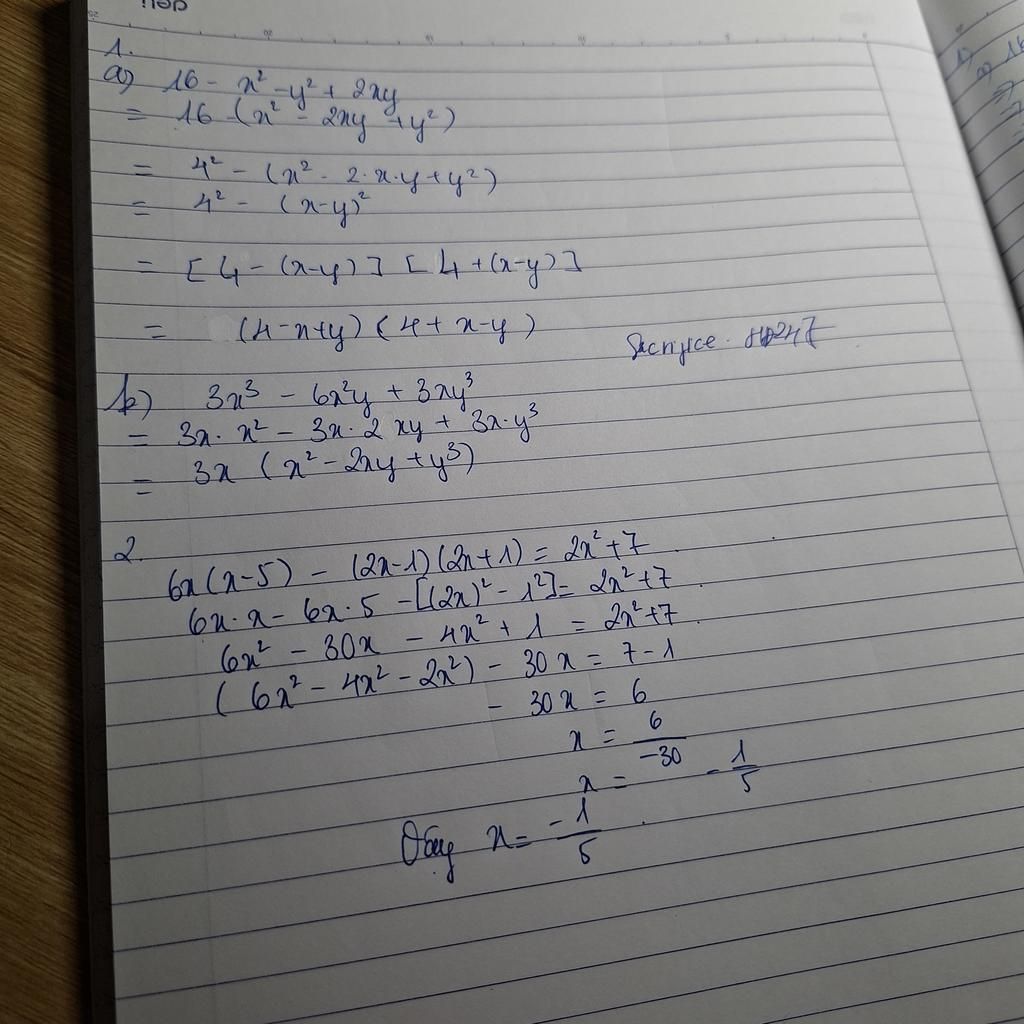 deli
1.
a) 16 - x² - y² + 2xy
= 16 - (x² - 2xy + y²)
= 4² - (x² - 2·x·y + y²)
= 4² - (x-y)²
= [4 - (x-y)] [4 + (x-y)]
= (4-x+y) (4 + x-y)
b) 3x³ - 6x²y + 3xy³
= 3x·x² - 3x·2xy + 3x·y³
= 3x (x² - 2xy + y³)
2.
6x(x-5) - (2x-1)(2x+1) = 2x²+7
6x·x - 6x·5 - [(2x)² - 1²] = 2x²+7
6x² - 30x - 4x² + 1 = 2x²+7
(6x² - 4x² - 2x²) - 30x = 7-1
- 30x = 6
x = 6/-30
x = -1/5
x = -1/5